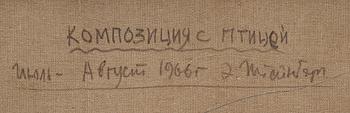 КОМПОЗИЦИЯ С ПТИЦЕЙ
Июль - Август 1966г Э. Штейнберг